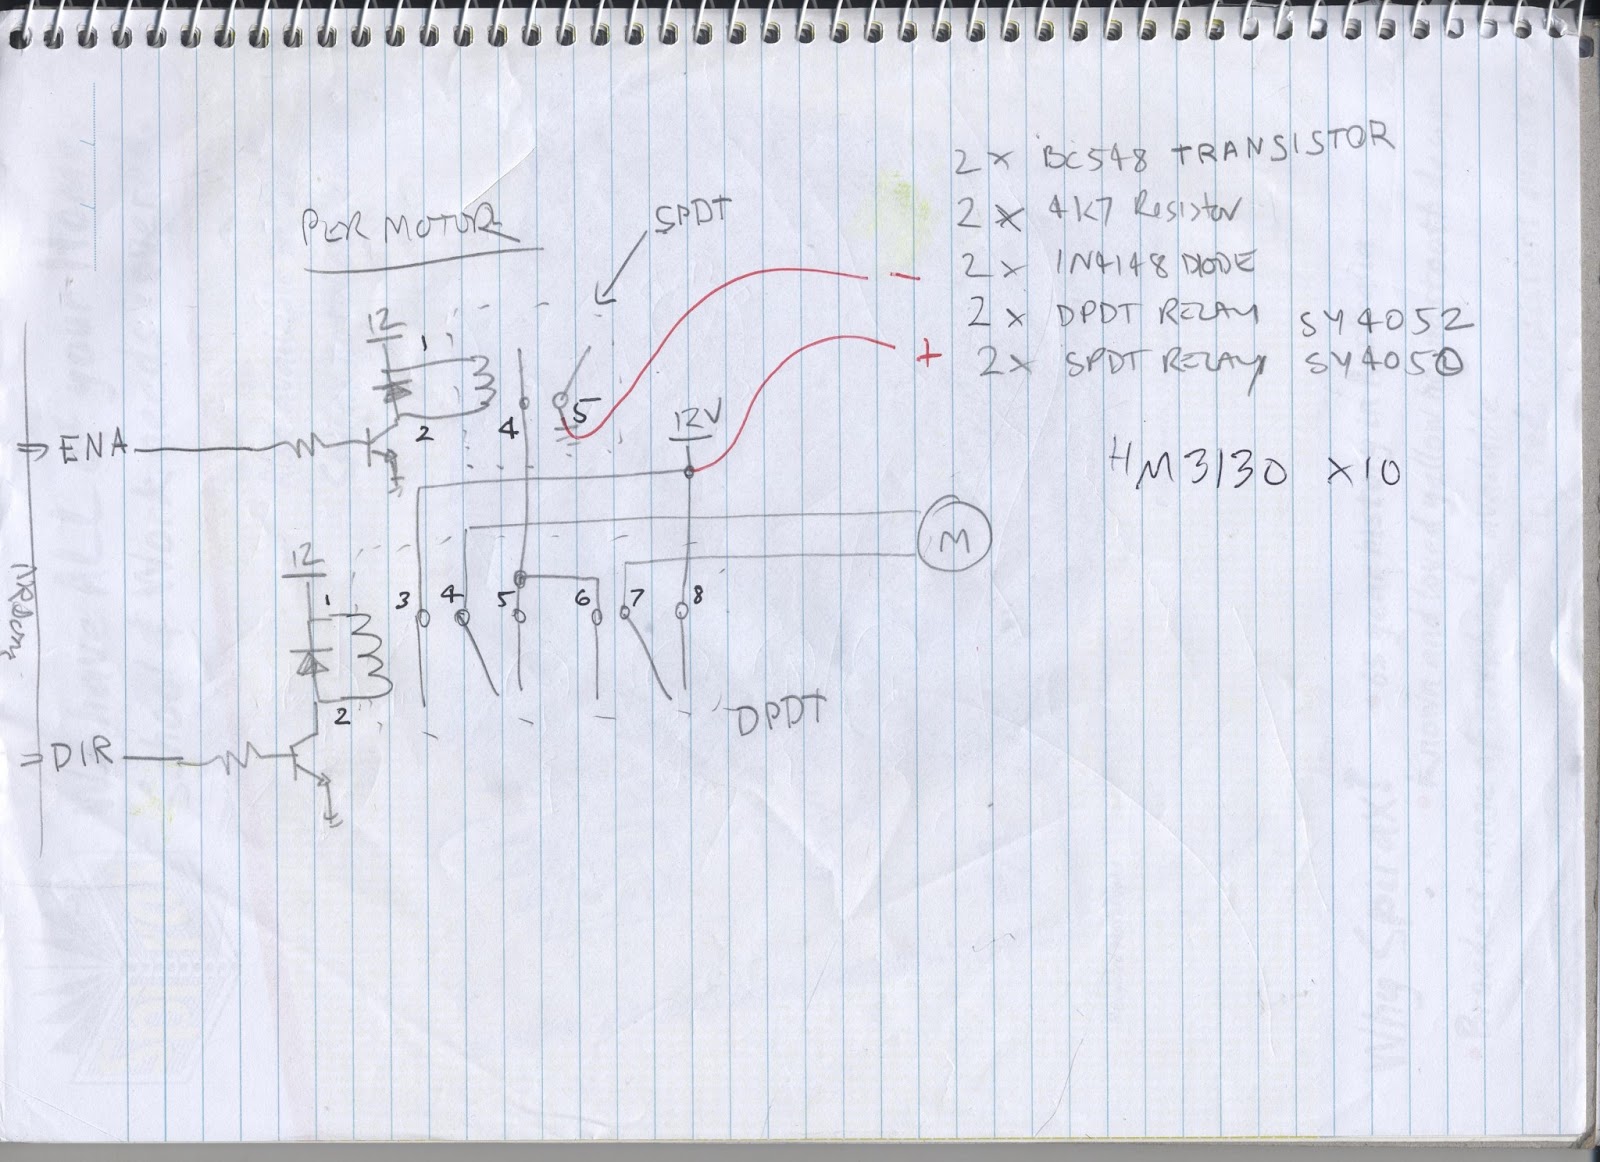 PER MOTOR
SPDT
12
1
2
4
5
ENA
12V
+
-
M
12
1
2
3 4 5 6 7 8
DPDT
DIR
2 x BC548 TRANSISTOR
2 x 4K7 Resistor
2 x 1N4148 DIODE
2 x DPDT RELAY SY4052
2x SPDT RELAY SY4050
HM3130 x10